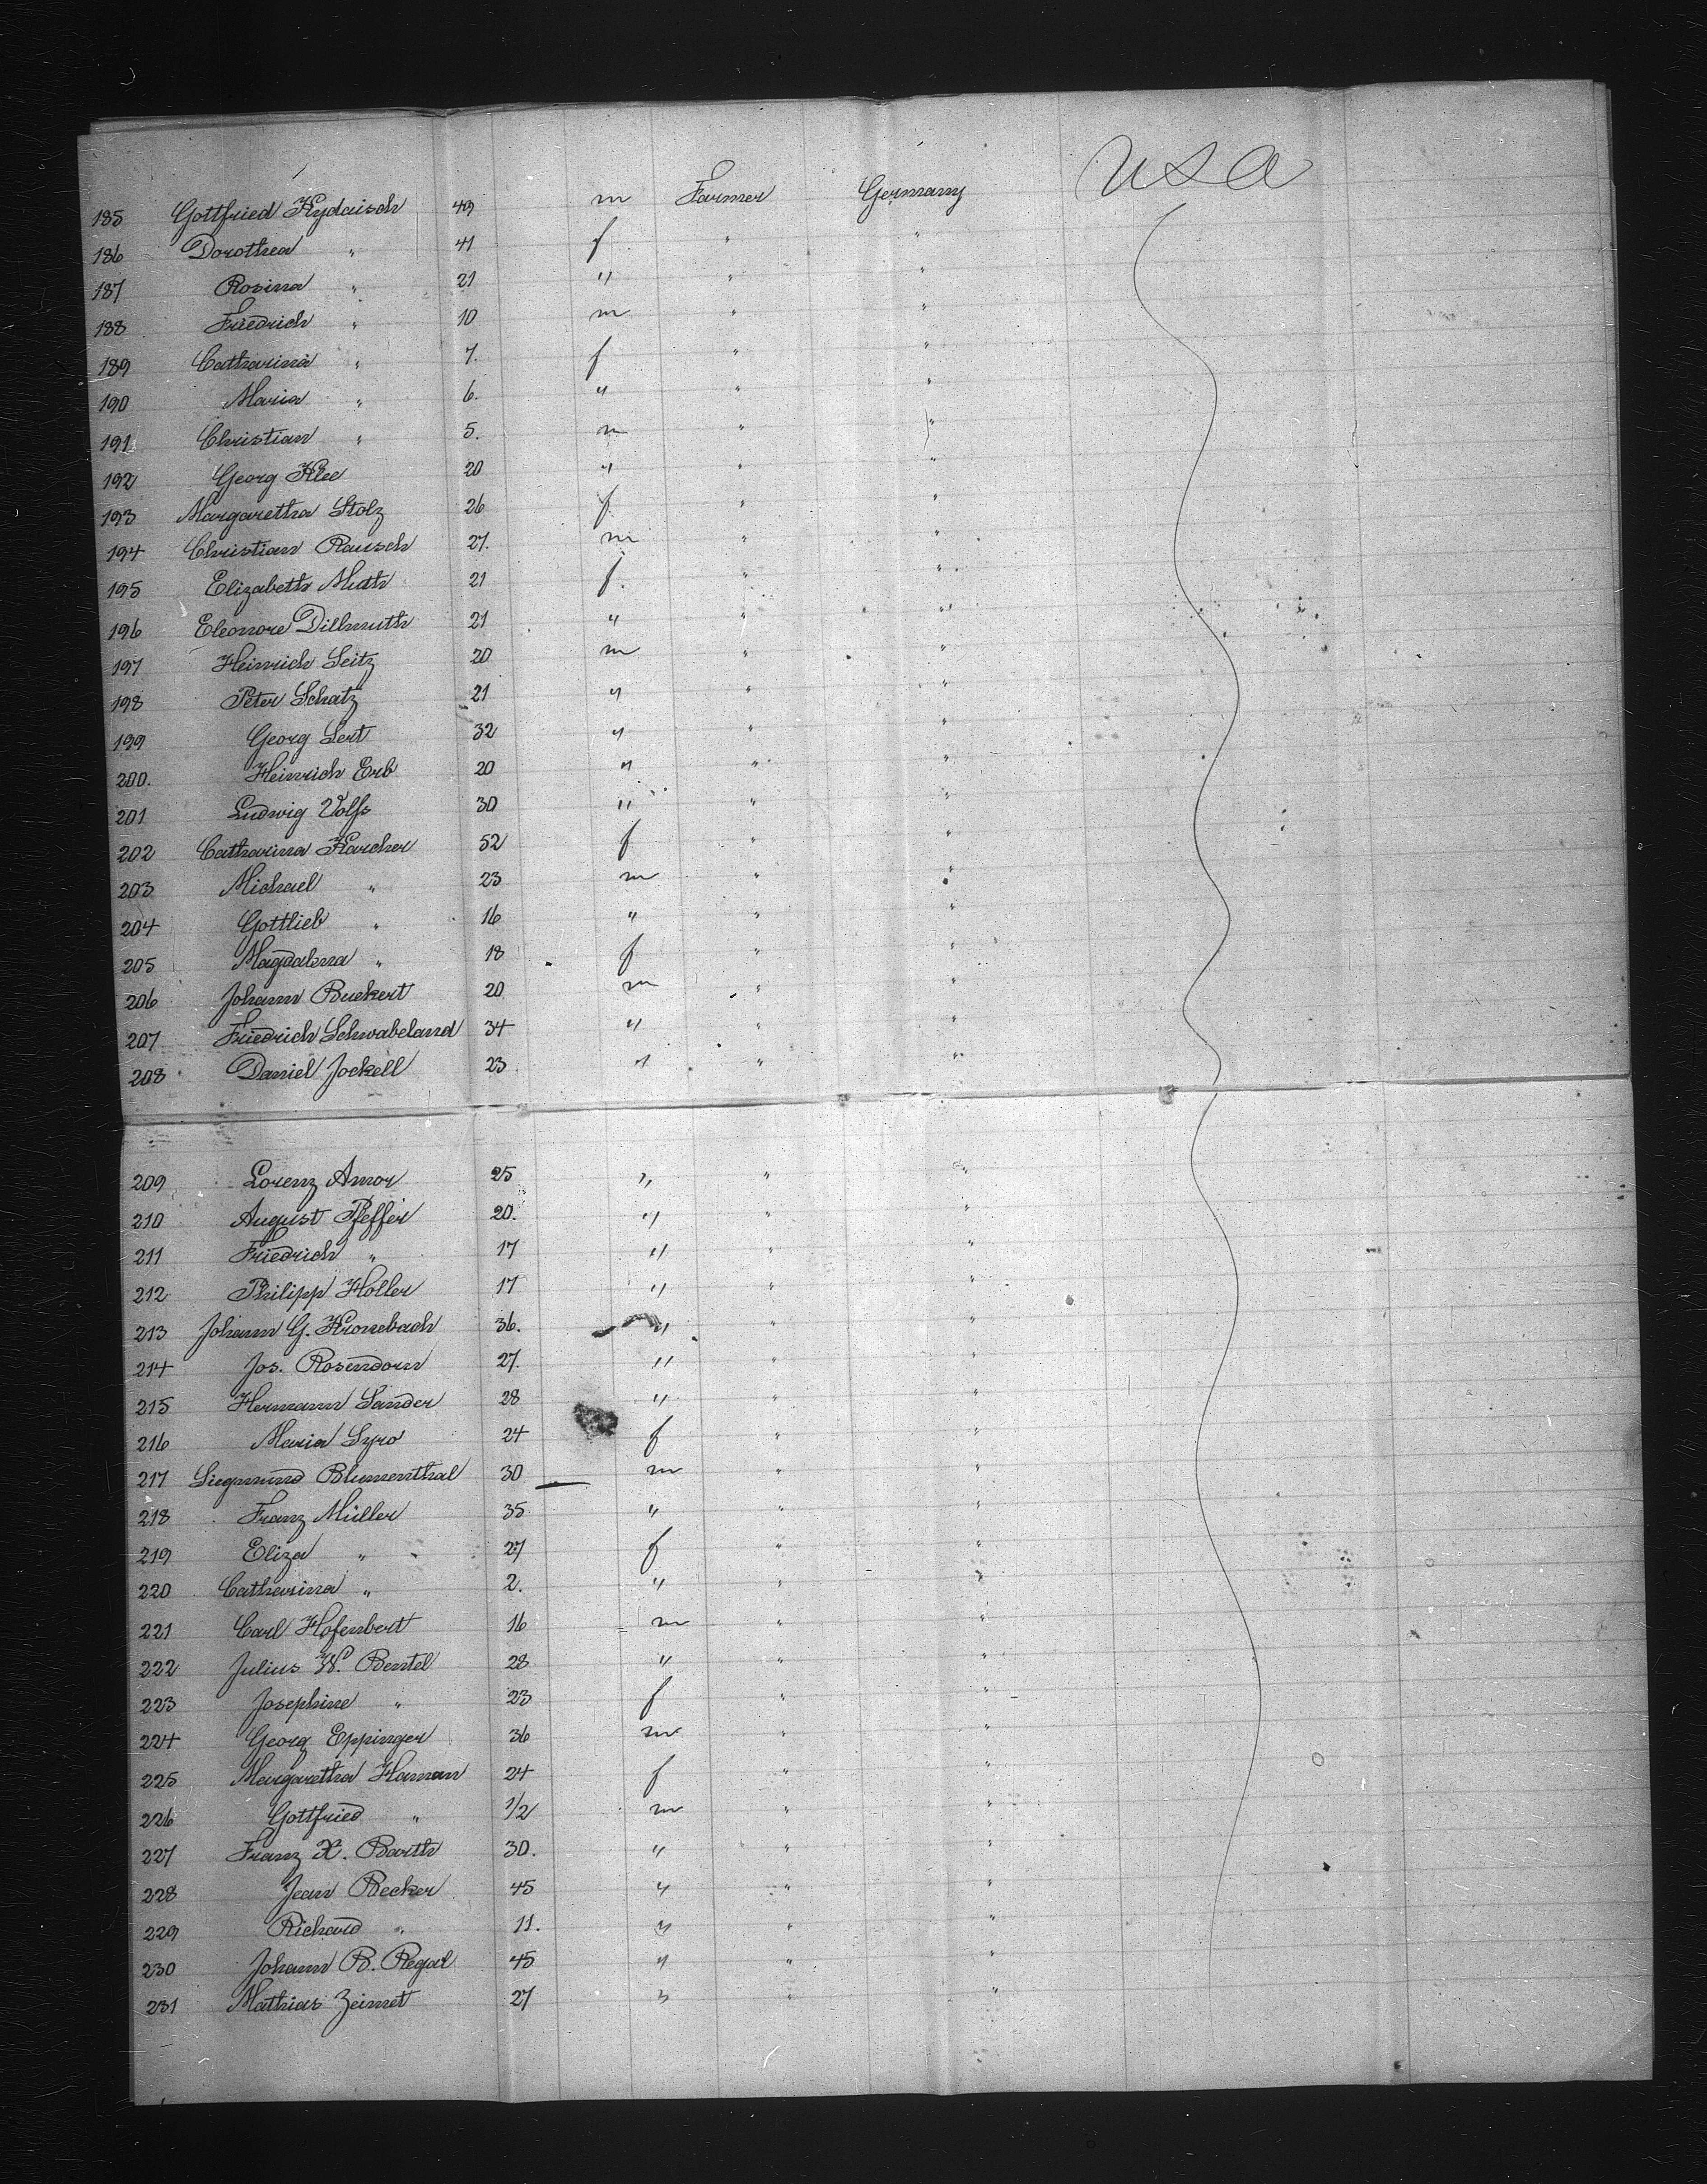 USA
185 Gottfried Kydaisch 49 m Farmer Germany
186 Dorothea " 41 f " "
187 Rosina " 21 " " "
188 Friedrich " 10 m " "
189 Catharina " 7. f " "
190 Maria " 6. " " "
191 Christian " 5. m " "
192 Georg Klee 20 " " "
193 Margaretha Stolz 26 f " "
194 Christian Rausch 27. m " "
195 Elizabeth Muth 21 f. " "
196 Eleonore Dillmuth 21 " " "
197 Heinrich Seitz 20 m " "
198 Peter Schatz 21 " " "
199 Georg Lert 32 " " "
200. Heinrich Erb 20 " " "
201 Ludwig Volfs 30 " " "
202 Catharina Karcher 52 f " "
203 Michael " 23 m " "
204 Gottlieb " 16 " " "
205 Magdalena " 18 f " "
206 Johann Buckert 20 m " "
207 Friedrich Schwabeland 34 " " "
208 Daniel Jockell 23 " " "
209 Lorenz Amor 25 " " "
210 August Pfeffer 20. " " "
211 Friedrich " 17 " " "
212 Philipp Holler 17 " " "
213 Johann G. Kronebach 36. " " "
214 Jos. Rosendorn 27. " " "
215 Hermann Sander 28 " " "
216 Maria Syro 24 f " "
217 Siegmund Blumenthal 30 m " "
218 Franz Müller 35 " " "
219 Eliza " 27 f " "
220 Catharina " 2. " " "
221 Carl Hofenbert 16 m " "
222 Julius W. Bentel 28 " " "
223 Josephine " 23 f " "
224 Georg Eppinger 36 m " "
225 Margaretha Haman 24 f " "
226 Gottfried " 1/2 m " "
227 Franz X. Barth 30. " " "
228 Jean Becker 45 " " "
229 Richard " 11. " " "
230 Johann B. Regal 45 " " "
231 Mathias Zeimet 27 " " "